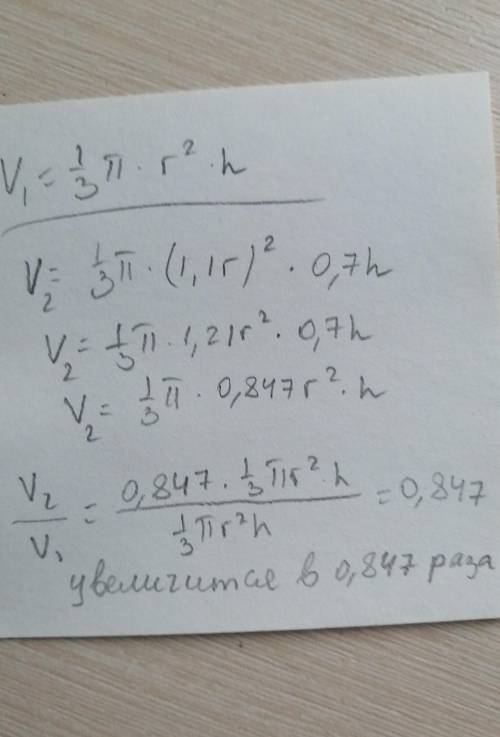 V₁ = 1/3 π · r² · h
V₂ = 1/3 π · (1,1r)² · 0,7h
V₂ = 1/3 π · 1,21r² · 0,7h
V₂ = 1/3 π · 0,847r² · h
V₂/V₁ = (0,847 · 1/3 πr² · h)/(1/3 πr²h) = 0,847
увеличится в 0,847 раза